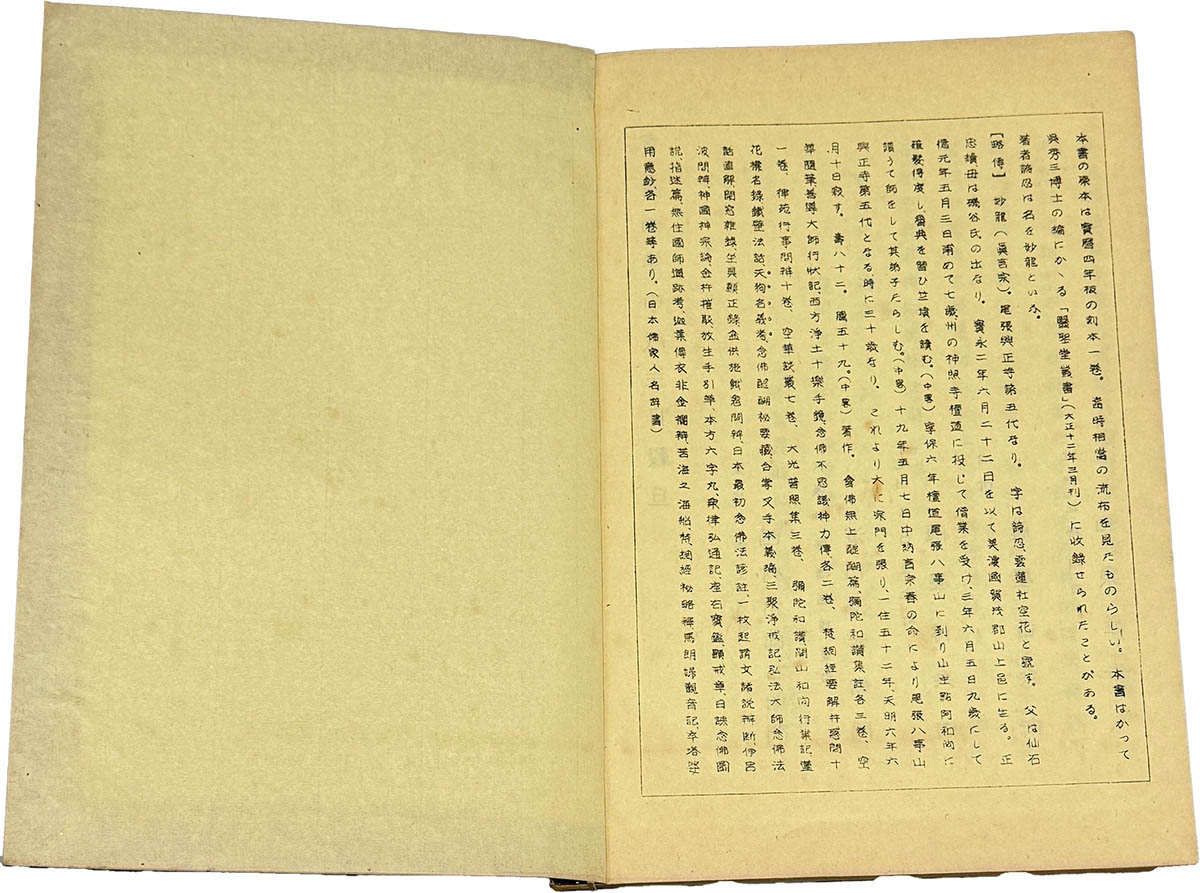 本書の原本は寳曆四年板の刻本一卷。當時相當の流布を見たものらしい。本書はかつて
吳秀三博士の編にかゝる「醫聖堂叢書」(大正十二年三月刊)に收録せられたことがある。
著者諦忍は名を妙龍といふ。
【略傳】妙龍(眞言宗)。尾張興正寺第五代なり。字は諦忍、雲蓮社空花と號す。父は仙石
忠續母は磯谷氏の出なり。寳永二年六月二十二日を以て美濃國賀茂郡山上邑に生る。正
德元年五月三日甫めて七歲州の神照寺檀道に投じて僧業を受け、三年六月五日九歲にして
薙髮得度し密典を習ひ竺墳を讀む。(中畧)享保六年檀道尾張八事山に到り山主諦阿和尚に
請うて師をして其弟子たらしむ。(中畧)十九年五月七日中納言宗春の命により尾張八事山
興正寺第五代となる、時に三十歲なり。これより大に宗門を張り、一住五十二年、天明六年六
月十日寂す。壽八十二。﨟五十九。(中畧)著作。念佛無上醍醐篇、彌陀和讚集註、各三卷、空
華隨筆善導大師行狀記、西方淨土十樂手鏡、念佛不思議神力傳、各二卷、梵網經要解幷惑問十
一卷、律苑行事問辨十卷、空華談叢七卷、大光普照集三卷、彌陀和讚開山和尚行業記蓮
花機名錄鐵壁法話、天狗名義考、念佛醍醐祕要藏、合掌叉手本義編、三聚淨戒記弘法大師念佛法
話直解閑窓雜錄、坐具顯正錄盆供施餓鬼問辨、日本最初念佛法諺註、一枚起請文諸說辨斷、伊呂
波問辨、神國神宗論金杵摧駁、放生手引草、本方六字丸、衆律弘通記、虛石寳鑑、顯戒章、日課念佛圖
說、指迷篇、無住國師道跡考、迦葉傳衣非金襴辨、苦海之海船、梵網經祕略、禅馬朗婦觀音記卒塔婆
用意鈔各一卷等あり。(日本佛家人名辭書)